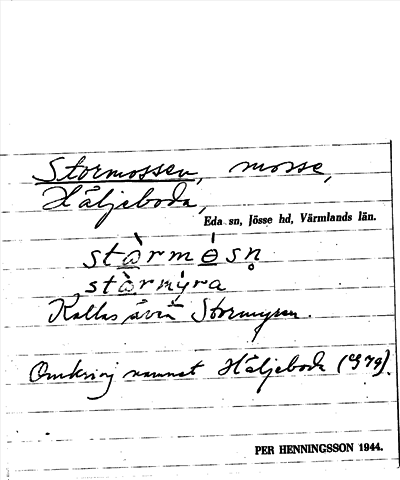 Stormossen, mosse,
Häljeboda,
Eda sn, Jösse hd, Värmlands län.
stɷ̀rmɵ́sn̥
stɷ̀rmýra
Kallas även Stormyren.
Omkring namnet Häljeboda (979).
PER HENNINGSSON 1944.